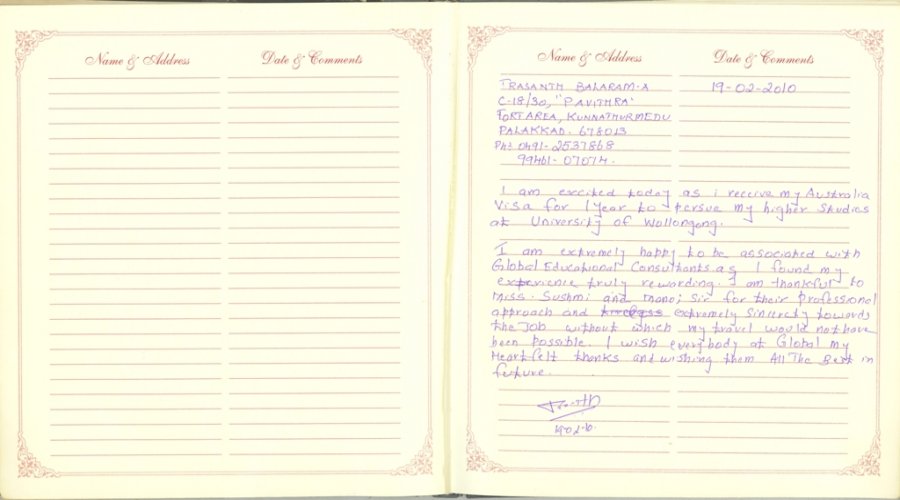 Name & Address Date & Comments
Name & Address Date & Comments
PRASANTH BALARAM-A 19-02-2010
C-18/30, "PAVITHRA"
FORT AREA, KUNNATHURMEDU
PALAKKAD. 678013
Ph: 0491-2537868
99461-07074.
I am excited today as i receive my Australia
Visa for 1 year to persue my higher studies
at University of Wollongong.
I am extremely happy to be associated with
Global Educational Consultants as I found my
experience truly rewarding. I am thankful to
Miss. Sushmi and Manoj Sir for their Professional
approach and extremely Sincerety towards
the Job without which my travel would not have
been possible. I wish everybody at Global my
Heartfelt thanks and wishing them All The Best in
future.
19-02-10.